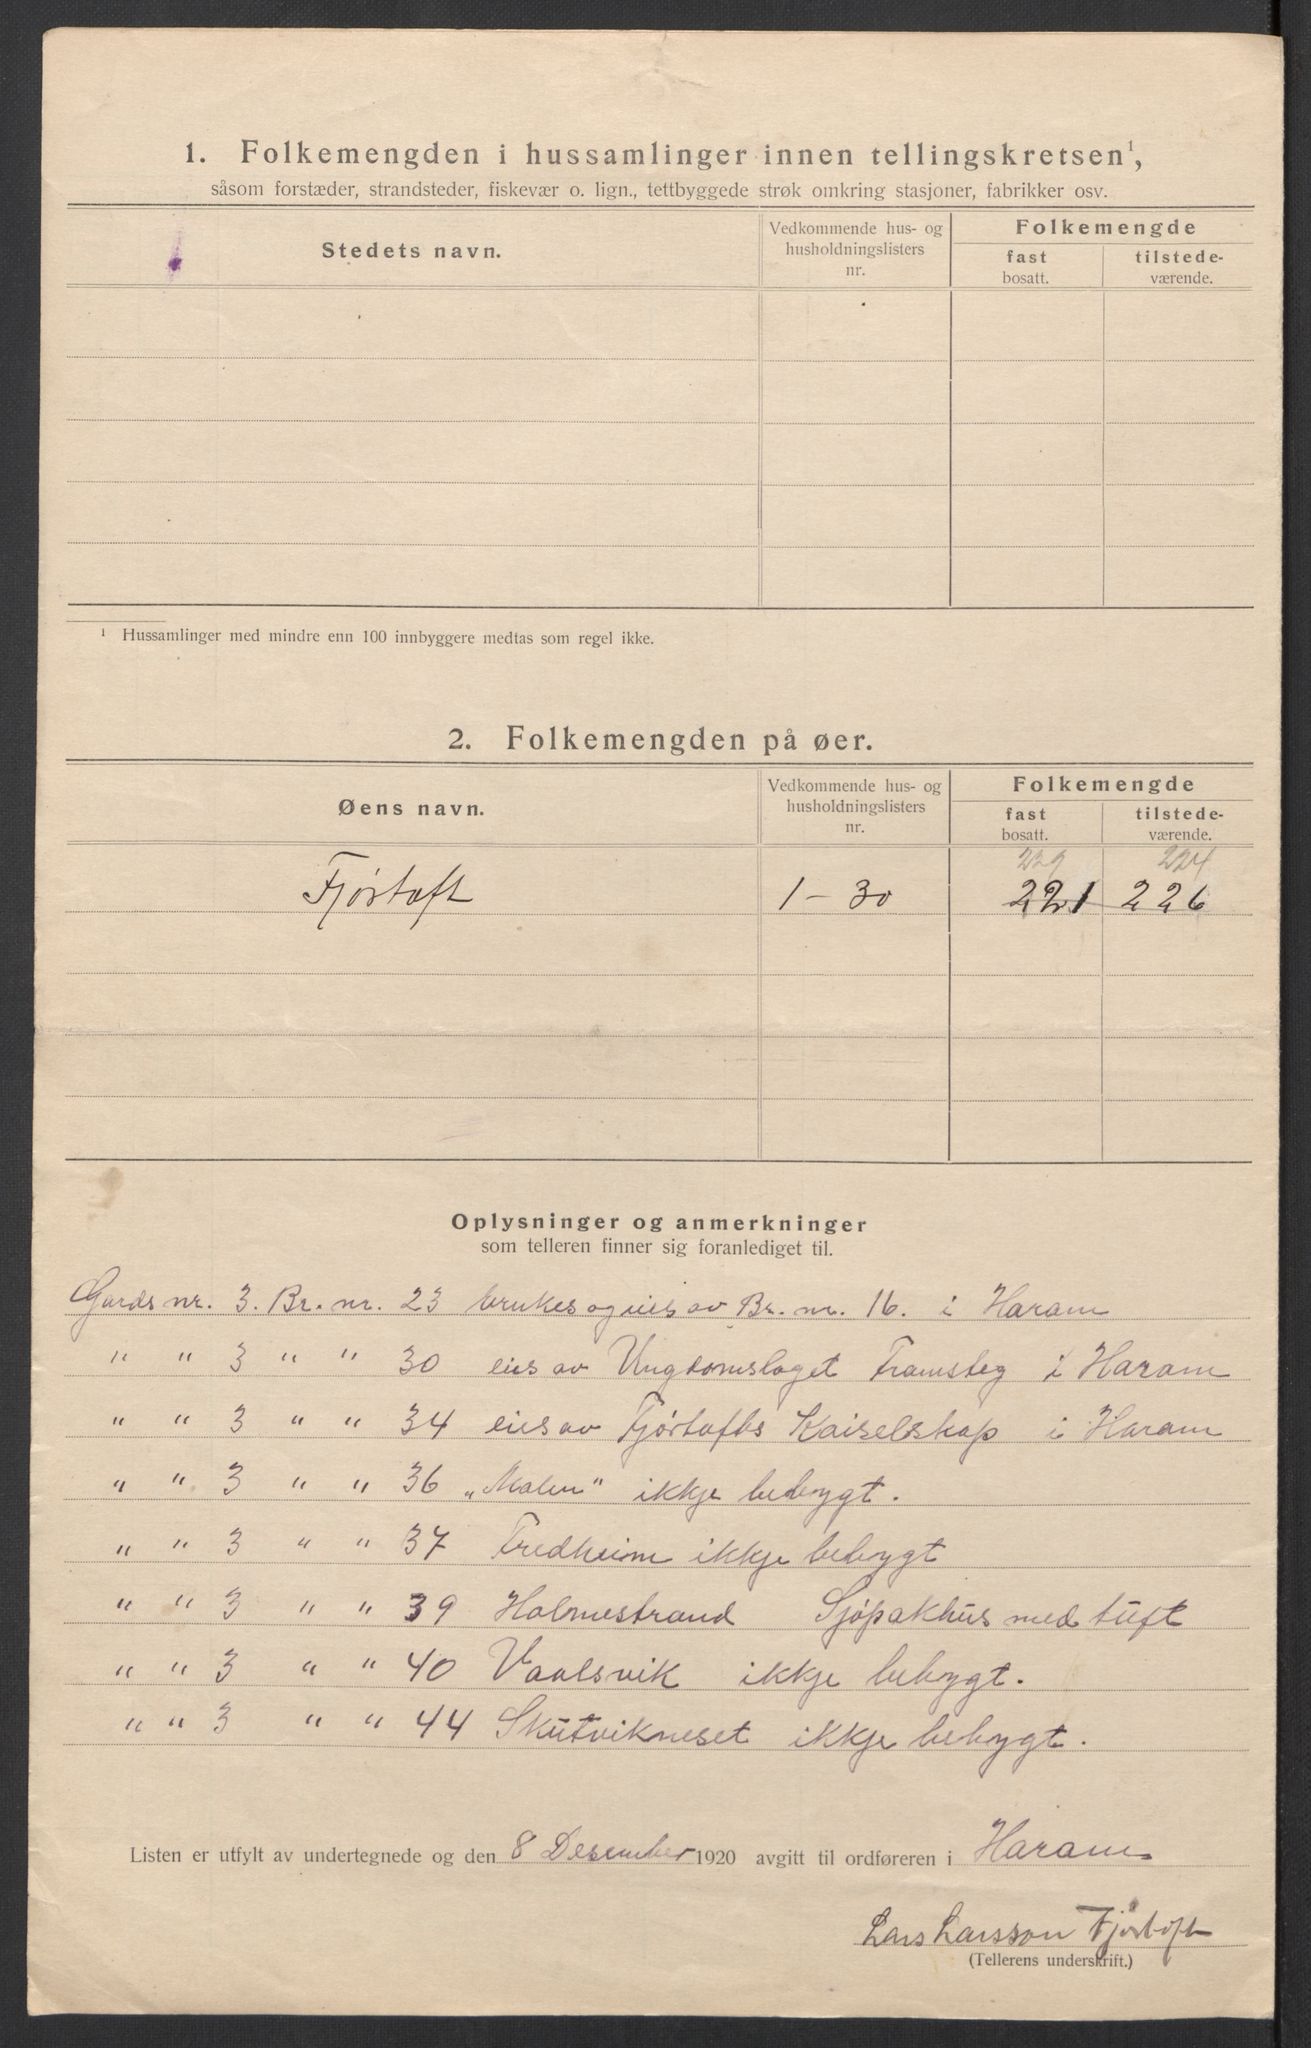 1. Folkemengden i hussamlinger innen tellingskretsen¹,
såsom forstæder, strandsteder, fiskevær o. lign., tettbyggede strøk omkring stasjoner, fabrikker osv.
Stedets navn.
Vedkommende hus- og husholdningslisters nr.
Folkemengde
fast bosatt.
tilstede-værende.
¹ Hussamlinger med mindre enn 100 innbyggere medtas som regel ikke.
2. Folkemengden på øer.
Øens navn.
Vedkommende hus- og husholdningslisters nr.
Folkemengde
fast bosatt.
tilstede-værende.
229 224
Fjørtoft 1 – 30 221 226
Oplysninger og anmerkninger
som telleren finner sig foranlediget til.
Gards nr. 3. Br. nr. 23 brukes og eies av Br. nr. 16. i Haram
" " 3 " " 30 eies av Ungdomslaget Framsteg i Haram
" " 3 " " 34 eies av Fjørtofts Kaiselskap i Haram
" " 3 " " 36 „Malen" ikkje bebygt.
" " 3 " " 37 Fredheim ikkje bebygt
" " 3 " " 39 Holmestrand Sjøpakhus med tuft
" " 3 " " 40 Vaalsvik ikkje bebygt.
" " 3 " " 44 Skutvikneset ikkje bebygt.
Listen er utfylt av undertegnede og den 8 Desember 1920 avgitt til ordføreren i Haram
Lars Larsson Fjørtoft
(Tellerens underskrift.)